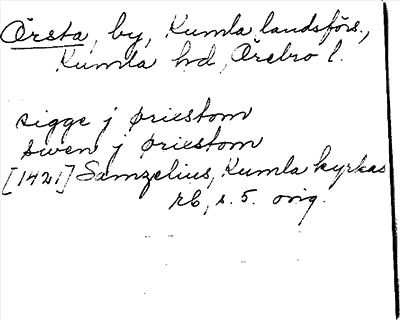 Örsta, by, Kumla landsförs.,
Kumla hd, Örebro l.
sigge j øriestom
swen j øriestom
[1421] Samzelius, Kumla kyrkas
rb, s. 5. orig.